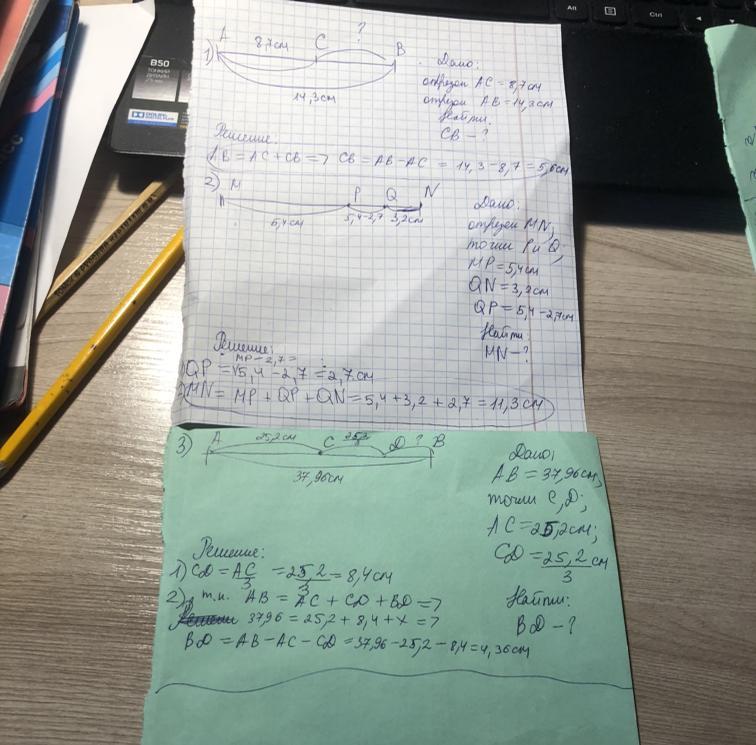 Alt
Ctrl
B50
DOLBY
1) A 8,7см C ? B
14,3см
Дано:
отрезок AC = 8,7см
отрезок AB = 14,3см
Найти:
CB - ?
Решение:
AB = AC + CB => CB = AB - AC = 14,3 - 8,7 = 5,6см
2) M P Q N
5,4см 5,4-2,7 3,2см
Дано:
отрезок MN;
точки P и Q;
MP = 5,4см
QN = 3,2см
QP = 5,4 - 2,7см
Найти:
MN - ?
Решение:
MP - 2,7 =
1) QP = 5,4 - 2,7 = 2,7см
2) MN = MP + QP + QN = 5,4 + 3,2 + 2,7 = 11,3см
3) A 25,2см C D ? B
37,96см
Дано:
AB = 37,96см;
точки C, D;
AC = 25,2см;
CD = 25,2/3 см
Найти:
BD - ?
Решение:
1) CD = AC/3 = 25,2/3 = 8,4см
2) т.к. AB = AC + CD + BD =>
37,96 = 25,2 + 8,4 + x =>
BD = AB - AC - CD = 37,96 - 25,2 - 8,4 = 4,36см